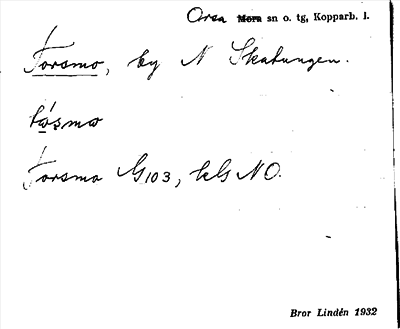 Orsa Mora sn o. tg, Kopparb. l.
Torsmo, by N Skatungen.
tå̀smo
Torsmo G103, kbl NO.
Bror Lindén 1932